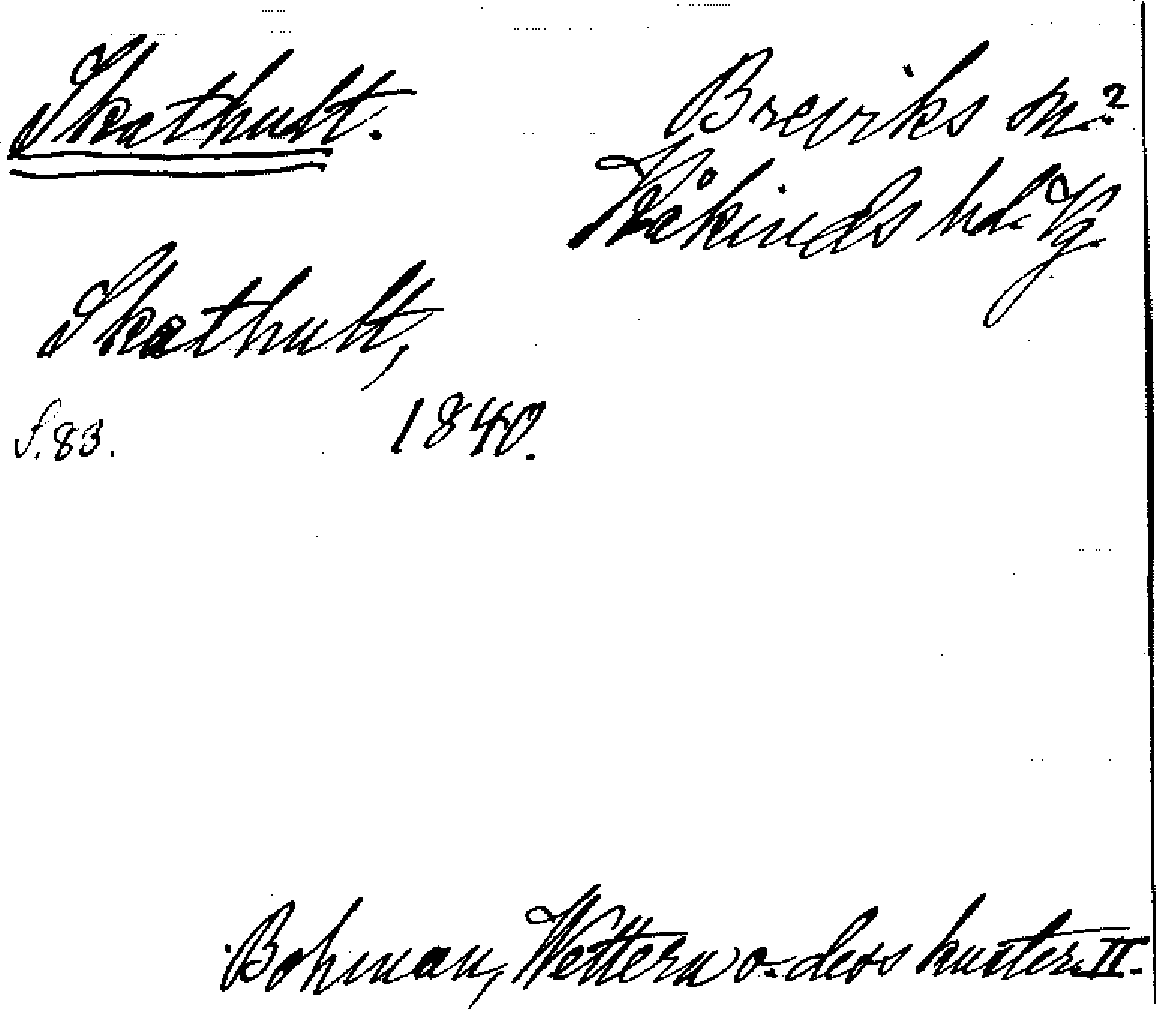 Skathult.
Breviks sn?
Kåkinds hd. Vg.
Skathult,
S. 83. 1840.
Bohman, Wettern o. dess kuster. II.